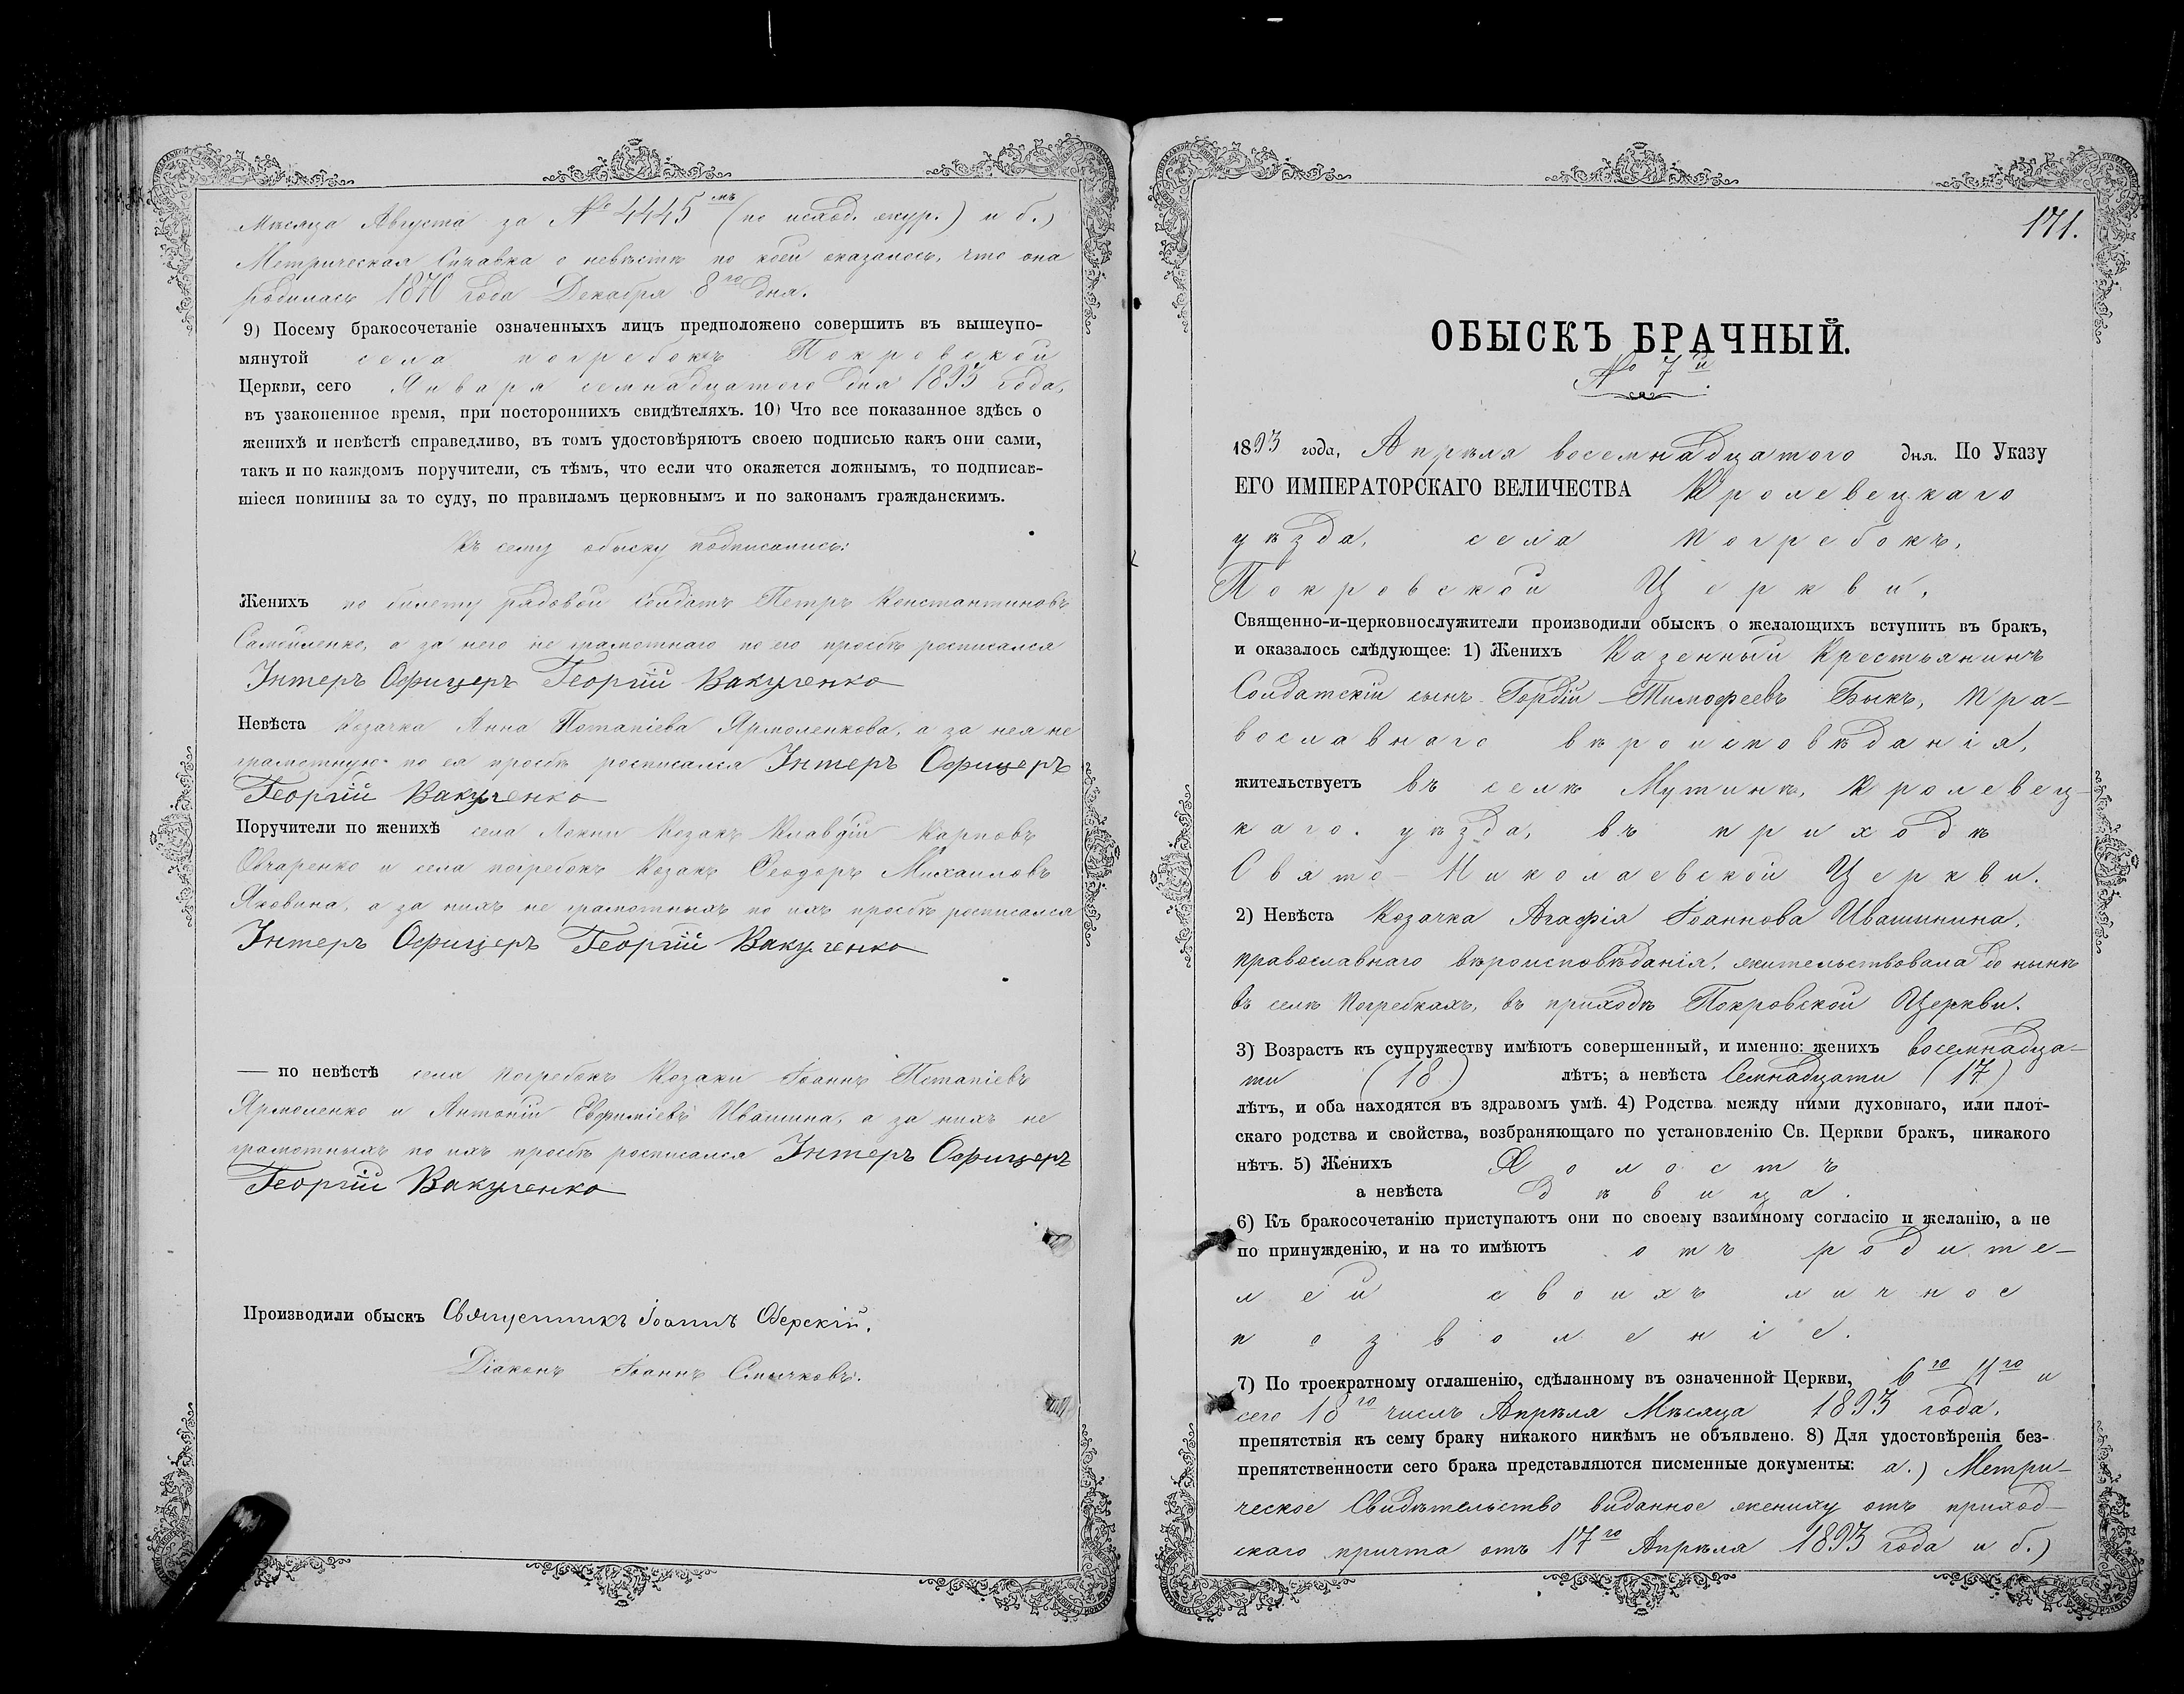 Мѣсяца Августа за № 4445мъ (по исход. жур.) и б.)
Метрическая Справка о невѣстѣ по коей оказалось, что она
родилась 1870 года Декабря 8го дня.
9) Посему бракосочетаніе означенныхъ лицъ предположено совершить въ вышеупо-
мянутой села погребокъ Покровской
Церкви, сего Января семнадцатого дня 1893 года,
въ узаконенное время, при постороннихъ свидѣтеляхъ. 10) Что все показанное здѣсь о
женихѣ и невѣстѣ справедливо, въ томъ удостовѣряютъ своею подписью какъ они сами,
такъ и по каждомъ поручители, съ тѣмъ, что если что окажется ложнымъ, то подписав-
шіеся повинны за то суду, по правиламъ церковнымъ и по законамъ гражданскимъ.
Къ сему обыску подписались:
Женихъ по билету рядовой солдатъ Петръ Константиновъ
Самойленко, а за него не грамотнаго по его просьбѣ росписался
Унтеръ Офицеръ Георгій Вакуленко
Невѣста Козачка Анна Потапіева Ярмоленкова, а за нея не
грамотную по ея просьбѣ росписался Унтеръ Офицеръ
Георгій Вакуленко
Поручители по женихѣ села Локни Козакъ Клавдій Карповъ
Овчаренко и села погребокъ Козакъ Ѳеодоръ Михаиловъ
Яковина, а за нихъ не грамотныхъ по ихъ просьбѣ росписался
Унтеръ Офицеръ Георгій Вакуленко
— по невѣстѣ села погребокъ Козаки Іоаннъ Потапіевъ
Ярмоленко и Антоній Евфиміевъ Ивашина, а за нихъ не
грамотныхъ по ихъ просьбѣ росписался Унтеръ Офицеръ
Георгій Вакуленко
Производили обыскъ Священникъ Іоаннъ Оберскій.
Діаконъ Іоаннъ
171.
ОБЫСКЪ БРАЧНЫЙ.
№ 7й
1893 года, Апрѣля восемнадцатого дня. По Указу
ЕГО ИМПЕРАТОРСКАГО ВЕЛИЧЕСТВА Кролевецкаго
уѣзда, села погребокъ,
Покровской Церкви,
Священно-и-церковнослужители производили обыскъ о желающихъ вступить въ бракъ,
и оказалось слѣдующее: 1) Женихъ Казенный Крестьянинъ
Солдатскій сынъ Гордій Тимофеевъ Быкъ, пра-
вославнаго вѣроисповѣданія,
жительствуетъ въ селѣ Мутинѣ, Кролевец-
каго уѣзда, въ приходѣ
Свято-Николаевской Церкви.
2) Невѣста Козачка Агафія Іоаннова Ивашинина,
православнаго вѣроисповѣданія, жительствовала до нынѣ
въ селѣ Погребкахъ, въ приходѣ Покровской Церкви.
3) Возрастъ къ супружеству имѣютъ совершенный, и именно: женихъ восемнадца-
ти (18) лѣтъ; а невѣста Семнадцати (17)
лѣтъ, и оба находятся въ здравомъ умѣ. 4) Родства между ними духовнаго, или плот-
скаго родства и свойства, возбраняющаго по установленію Св. Церкви бракъ, никакого
нѣтъ. 5) Женихъ Холостъ
а невѣста дѣвица.
6) Къ бракосочетанію приступаютъ они по своему взаимному согласію и желанію, а не
по принужденію, и на то имѣютъ отъ родите-
лей своихъ личное
позволеніе.
7) По троекратному оглашенію, сдѣланному въ означенной Церкви, 6го 11го и
сего 18го числъ Апрѣля Мѣсяца 1893 года,
препятствія къ сему браку никакого никѣмъ не объявлено. 8) Для удостовѣренія без-
препятственности сего брака представляются писменные документы: а.) Метри-
ческое Свидѣтельство виданное жениху отъ приход-
скаго причта отъ 17го Апрѣля 1893 года и б.)